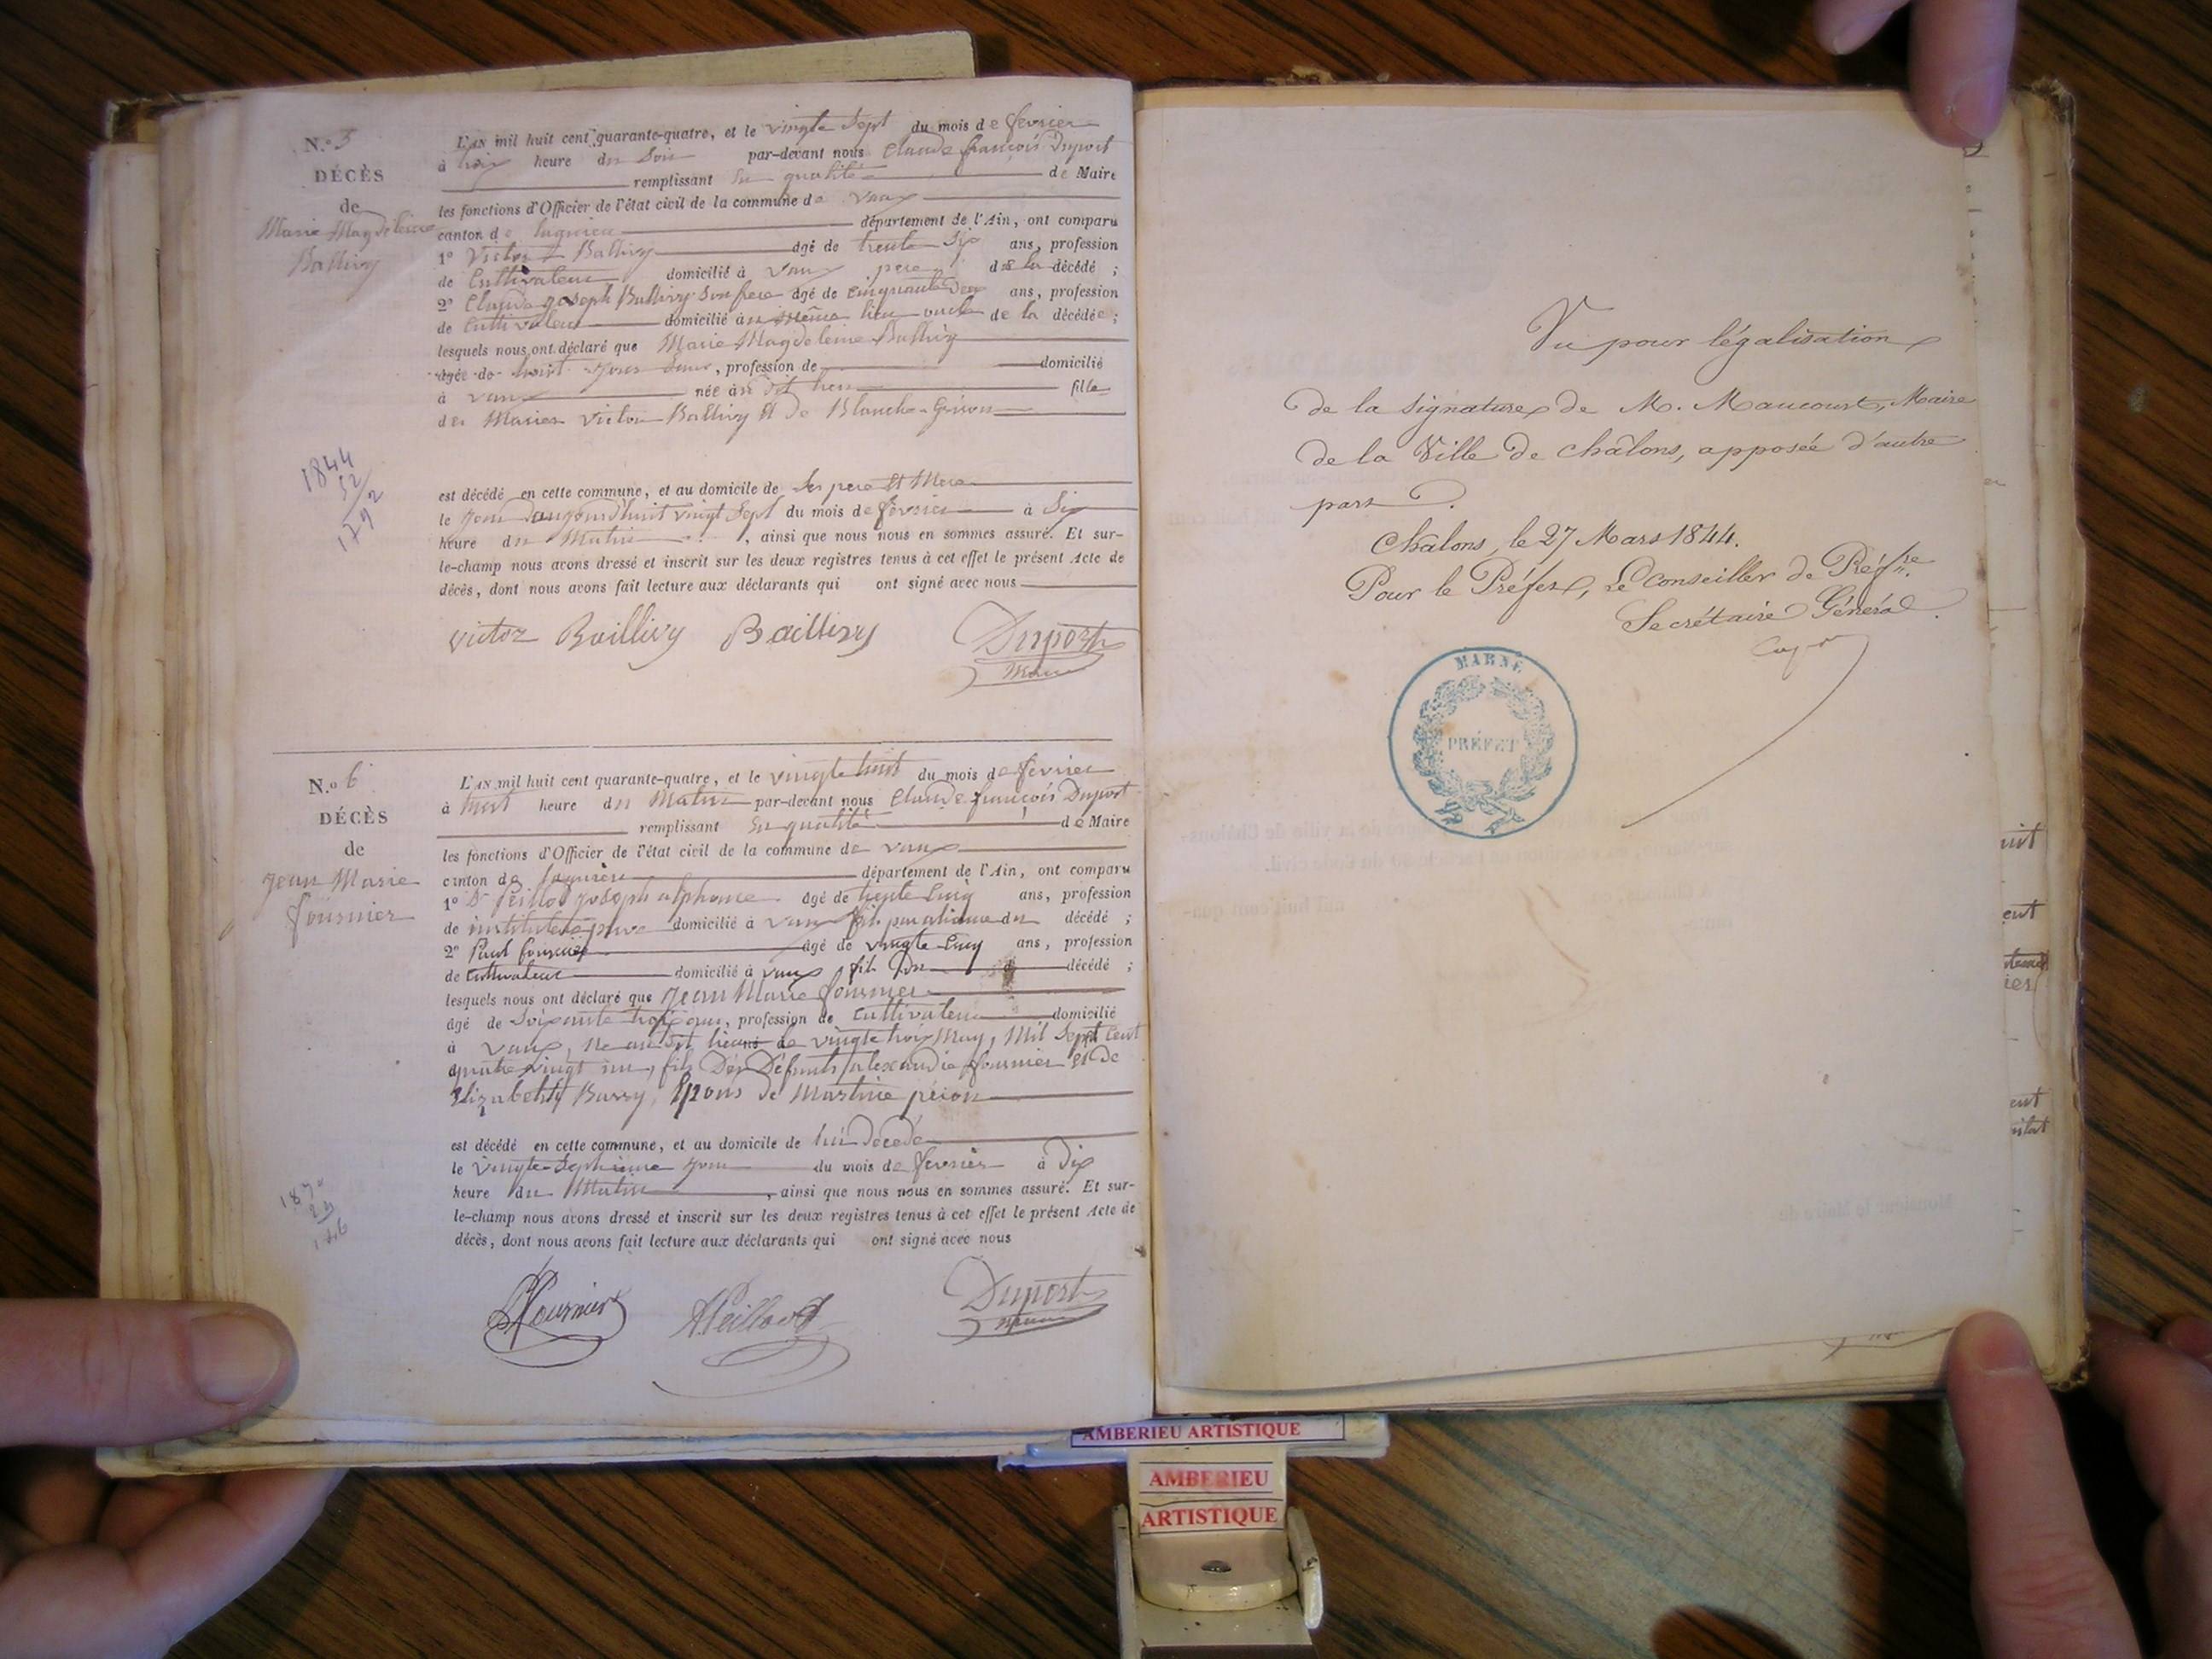 N.o 5
DÉCÈS
de
Marie Magdeleine
Ballivy
L'AN mil huit cent quarante-quatre, et le vingte Sept du mois de fevrier
à trois heure du Soir par-devant nous Claude françois Duport
remplissant En qualité de Maire
les fonctions d'Officier de l'état civil de la commune de vaux
canton de lagnieu département de l'Ain, ont comparu
1o Victor Ballivy âgé de trente Six ans, profession
de Cultivateur domicilié à vaux pere de la décédé ;
2o Claude joseph Ballivy son frere âgé de cinquante Deux ans, profession
de Cultivateur domicilié au même lieu oncle de la décédée ;
lesquels nous ont déclaré que Marie Magdeleine Ballivy
âgée de huit jours , profession de domicilié
à vaux née au dit lieu fille
des Mariés Victor Ballivy Et de Blanche
1844
52
1792
est décédé en cette commune, et au domicile de Ses pere Et Mere
le jour daujourd'huit vingt Sept du mois de fevrier à Six
heure du Matin , ainsi que nous nous en sommes assuré. Et sur-
le-champ nous avons dressé et inscrit sur les deux registres tenus à cet effet le présent Acte de
décès, dont nous avons fait lecture aux déclarants qui ont signé avec nous
victor Baillivy Baillivy Duport
Maire
N.o 6
DÉCÈS
de
Jean Marie
fournier
L'AN mil huit cent quarante-quatre, et le vingte huit du mois de fevrier
à huit heure du Matin par-devant nous Claude françois Duport
remplissant En qualité de Maire
les fonctions d'Officier de l'état civil de la commune de vaux
canton de lagnieu département de l'Ain, ont comparu
1o Sr Peillod joseph alphonce âgé de trente Cinq ans, profession
de instituteur privé domicilié à vaux fils par aliance du décédé ;
2o Paul fournier âgé de vingte Cinq ans, profession
de Cultivateur domicilié à vaux fils Du décédé ;
lesquels nous ont déclaré que Jean Marie fournier
âgé de Soixante trois ans, profession de Cultivateur domicilié
à vaux, ne au dit lieu le vingte trois May, Mil Sept Cent
quatre vingt un, fils Des Défunts alexandre fournier Et de
Elizabeth Barry, Epous de Martine
est décédé en cette commune, et au domicile de lui décédé
le vingte-Septieme jour du mois de fevrier à Dix
heure du Matin , ainsi que nous nous en sommes assuré. Et sur-
le-champ nous avons dressé et inscrit sur les deux registres tenus à cet effet le présent Acte de
décès, dont nous avons fait lecture aux déclarants qui ont signé avec nous
PFournier APeillod Duport
maire
Vu pour légalisation
de la signature de M. Maucourt, Maire
de la Ville de Châlons, apposée d'autre
part.
Châlons, le 27 Mars 1844.
Pour le Préfet, Le Conseiller de Préfre.
Secrétaire Général.
MARNE
PRÉFET
AMBERIEU ARTISTIQUE
AMBERIEU
ARTISTIQUE